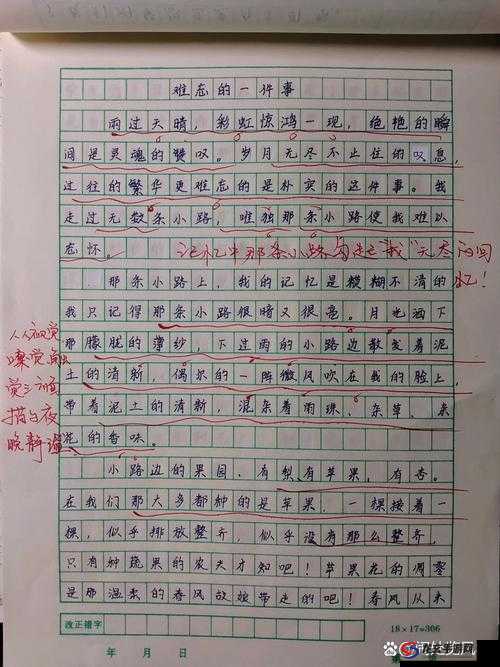 难忘的一件事
雨过天晴，彩虹惊鸿一现，绝艳的瞬
间是灵魂的赞叹。岁月无尽不止住的叹息，
过往的繁华更难忘的是朴实的这件事。我
走过无数条小路，唯独那条小路使我难以
忘怀。记忆中那条小路勾起"我"无尽的回忆！
那条小路上，我的记忆是模糊不清的
我只记得那条小路很暗又很亮。月光洒下
那朦胧的薄纱，下过雨的小路边散发着泥
土的清新，偶尔的一阵微风吹在我的脸上，
带着泥土的清新，混杂着雨珠、杂草、来
泥的香味。
人从视觉
嗅觉
觉三方面
描写夜
晚静谧
小路边的果园、有梨有苹果，有杏。
在我们那大多都种的是苹果，一棵接着一
棵，似乎排放整齐，似乎没有那么整齐，
只有种蔬果的农夫才知吧！苹果花的凋零
是那温柔的春风放娘带走的吧！春风从来
改正错字
18×17=306
年 月 日
九玩手游网